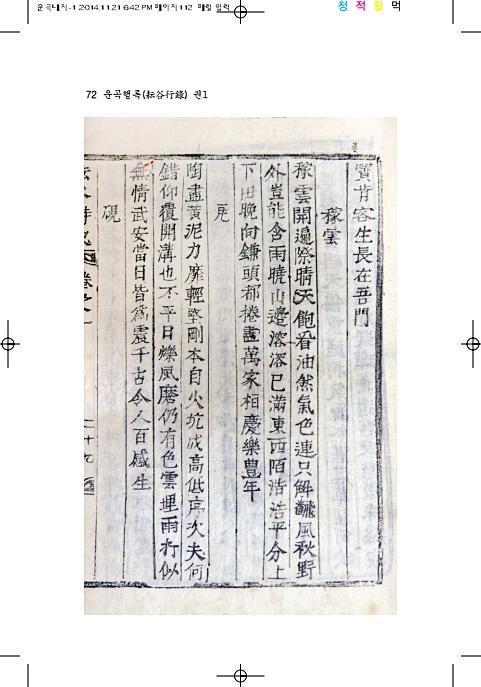 2014.11.21 6:42 PM 페이지112
청 적 황 먹
72 운곡행록(耘谷行錄) 권1
質肯容生長在吾門
稼雲
稼雲開遍際晴天飽看油然氣色連只解飜風秋野
外豈能含雨曉山邊溶溶已滿東西陌浩浩平分上
下田晩向鎌頭都捲盡萬家相慶樂豊年
瓦
陶盡黃泥力靡輕堅剛本自火坑成高低序次夫何
錯仰覆開溝也不平日爍風磨仍有色雲埋雨打似
無情武安當日皆爲震千古令人百感生
硯
卷之一 二十九